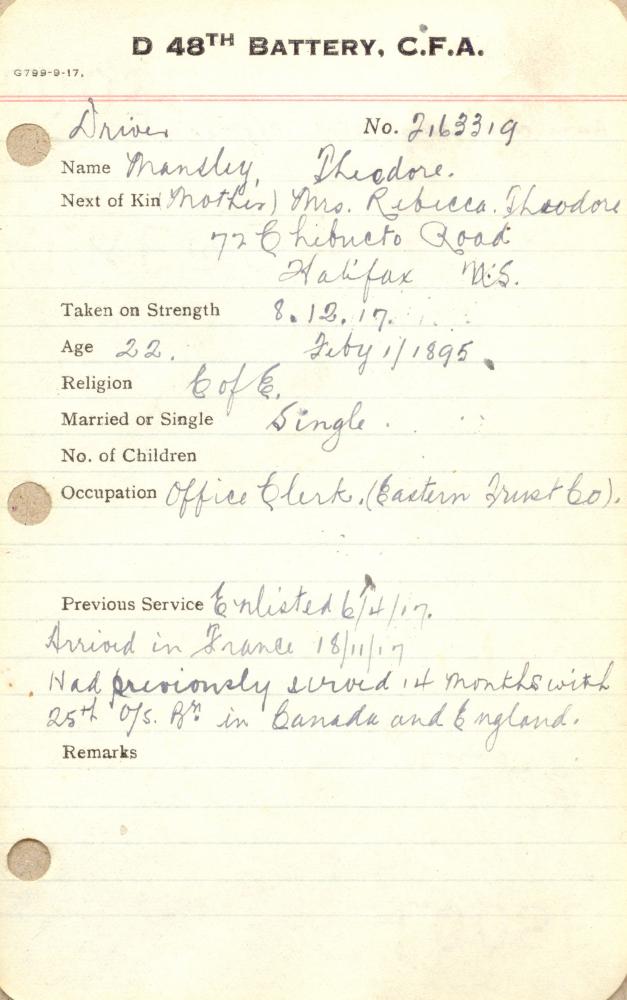 D 48TH BATTERY, C.F.A.
G799-9-17.
Driver No. 2163319
Name Mansley, Theodore.
Next of Kin (Mother) Mrs. Rebecca. Theodore
72 Chebucto Road
Halifax N.S.
Taken on Strength 8.12.17.
Age 22. Feby 1/1895
Religion C of E.
Married or Single Single.
No. of Children
Occupation Office Clerk. (Eastern Trust Co).
Previous Service Enlisted 6/4/17.
Arrived in France 18/11/17
Had previously served 14 months with
25th O/S. Bn in Canada and England.
Remarks